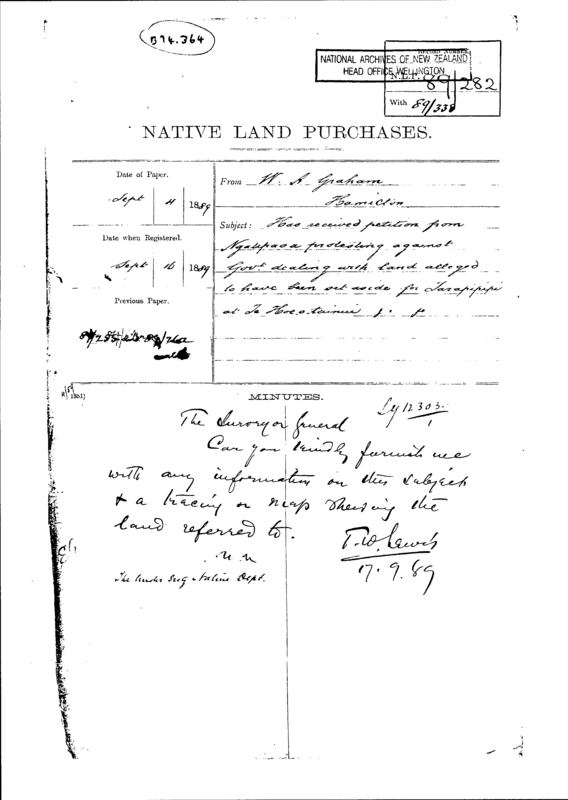 B74.364
NATIONAL ARCHIVES OF NEW ZEALAND
HEAD OFFICE WELLINGTON
N.L.P. 89/282
With 89/338
NATIVE LAND PURCHASES.
Date of Paper.
Sept 4 1889
Date when Registered.
Sept 16 1889
Previous Paper.
From W. A. Graham
Hamilton
Subject: Has received petition from
protesting against
Govt dealing with land alleged
to have been set aside for Tarapipipi
at Te
MINUTES.
The Surveyor General
Can you kindly furnish me
with any information on this subject
& a tracing or map shewing the
land referred to.
T.W. Lewis
17.9.89
The Under Secy Native Dept.